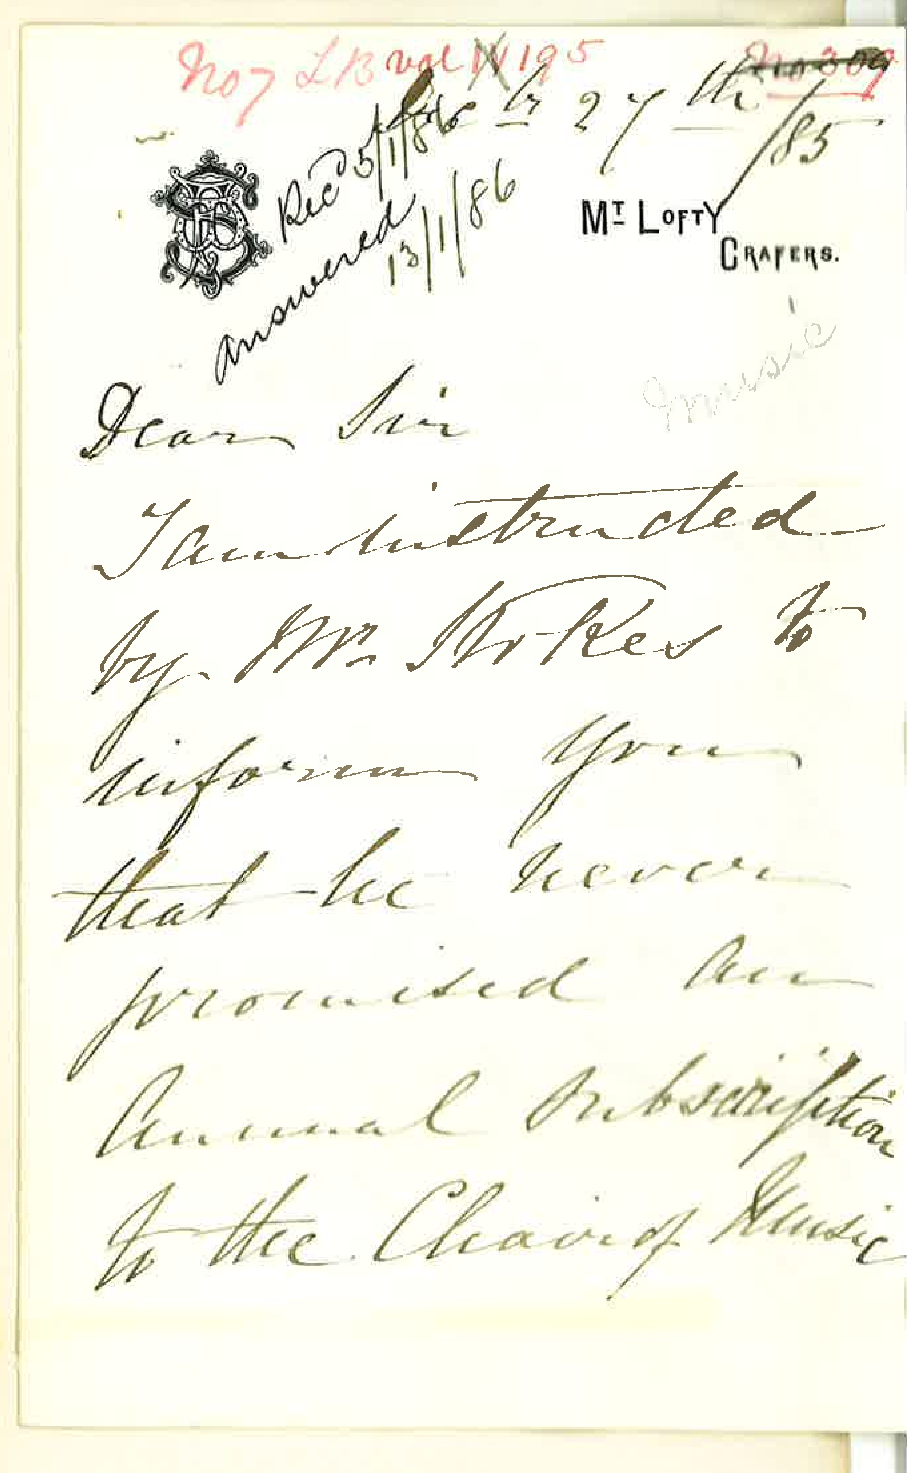 No 7 LB vol 195
No 309
27th/85
Recd 5/1/86
answered
13/1/86
MT LOFTY
CRAFERS.
Music
Dear Sir
I am instructed
by Mr. Stokes to
inform you
that he never
promised an
Annual Subscription
to the Chair of Music